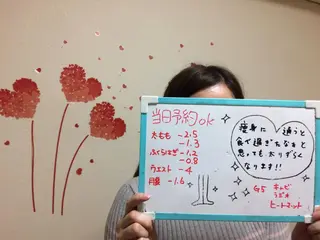 当日予約ok
太もも -2.5
-1.3
ふくらはぎ -1.2
-0.8
ウエスト -4
月腹 -1.6
痩身に通うと
食べ過ぎたなぁと
思っても太りずらく
なります!!
G5 キャビ
ラジオ
ヒートマット